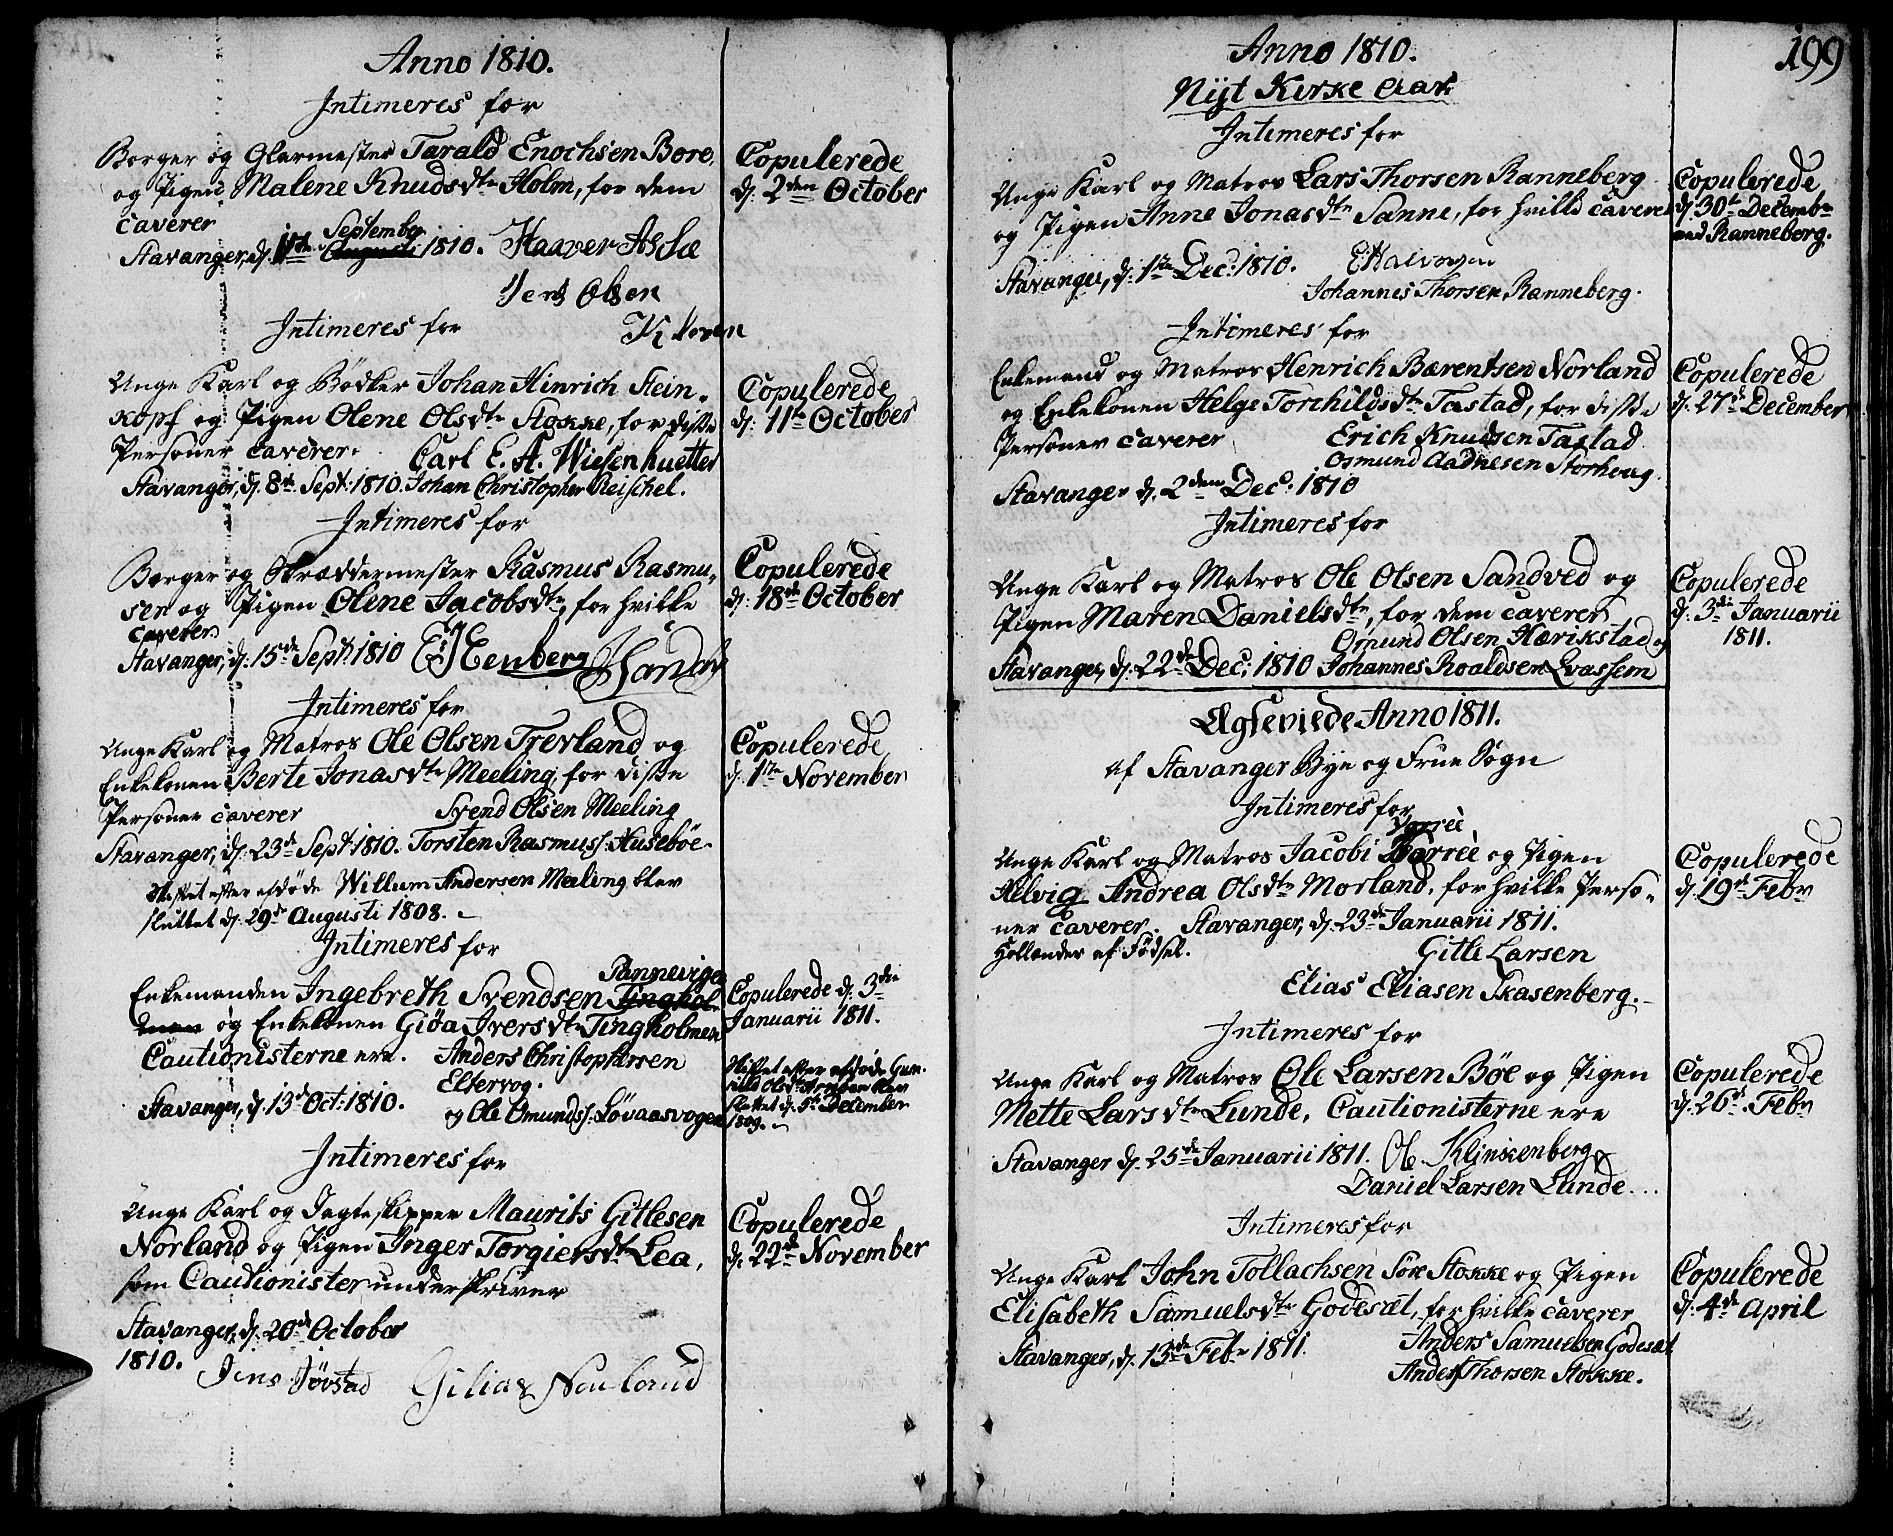 Anno 1810.
Intimeres for
Borger og Glarmester Tarald Enochsen Bore,
og Pigen Malene Knudsdtr Holm, for dem
caverer
September
Stavanger, d. 1ste Augusti 1810. Haaver Asbøe
Jens Olsen
Copulerede
d. 2den October
Intimeres for
Unge Karl og Bødker Johan Hinrich Stein-
kopf og Pigen Olene Olsdtr Stokke, for disse
Personer caverer. Carl E. A. Wiesenhuetter
Stavanger, d. 8de Sept: 1810. Johan Christopher Reischel.
Copulerede
d. 11te October
Intimeres for
Borger og Skræddermester Rasmus Rasmu-
sen og Pigen Olene Jacobsdtr, for hvilke
caverer
Stavanger, d. 15de Sept: 1810
Copulerede
d. 18de October
Intimeres for
Unge Karl og Matros Ole Olsen Trevland og
Enkekonen Berte Jonasdtr Meeling, for disse
Personer caverer Svend Olsen Meeling
Stavanger, d. 23de Sept: 1810. Torsten Rasmuss. Husebøe
Skiftet efter afdøde Willum Andersen Meeling blev
sluttet d. 29de Augusti 1808.
Copulerede
d. 1ste November
Intimeres for
Sannevigen
Enkemanden Ingebreth Svendsen Tinghol-
men og Enkekonen Giøa Iversdtr Tingholmen
Cautionisterne ere. Anders Christophersen
Eltervog.
Stavanger, d. 13de Oct: 1810. og Ole Omunds. Løvaasvogen
Copulerede d. 3die
Januarii 1811.
Skiftet efter afdøde Gun-
ild Olsdtr blev
sluttet d. 5te December
1809.
Intimeres for
Unge Karl og Jagteskipper Maurits Gitlesen
Norland og Pigen Inger Torgiersdtr Lea,
som Cautionister underskriver
Stavanger, d. 20de October
1810. Jens Jøvstad Gitle Nouland
Copulerede
d. 22de November
199
Anno 1810.
Nyt Kirke Aar
Intimeres for
Unge Karl og Matros Lars Thorsen Ranneberg
og Pigen Anne Jonasdtr Sanne, for hvilke caverer
Stavanger, d. 1ste Dec: 1810. E Halvorsen
Johannes Thorsen Ranneberg.
Copulerede
d. 30te Decembr
ved Ranneberg.
Intimeres for
Enkemand og Matros Henrich Bærentsen Norland
og Enkekonen Helge Torchildsdtr Tastad, for disse
Personer caverer Erich Knudsen Tastad
Osmund Aadnesen Storhoug.
Stavanger d. 2den Dec: 1810
Copulerede
d. 27de December
Intimeres for
Unge Karl og Matros Ole Olsen Sandved og
Pigen Maren Danielsdtr, for dem caverer
Osmund Olsen Harikstad og
Stavanger, d. 22de Dec: 1810 Johannes Roaldsen Qvassem
Copulerede
d. 3die Januarii
1811.
Ægteviede Anno 1811.
af Stavanger Bye og Frue Sogn
Intimeres for
Varrèe
Unge Karl og Matros Jacobi Barrèe og Pigen
Helvig Andrea Olsdtr Morland, for hvilke Perso-
ner caverer. Stavanger, d. 23de Januarii 1811.
Hollænder af Fødsel. Gitle Larsen
Elias Eliasen Skasenberg.
Copulerede
d. 19de Febr
Intimeres for
Unge Karl og Matros Ole Larsen Bøe og Pigen
Mette Larsdtr Lunde, Cautionisterne ere
Stavanger d. 25de Januarii 1811. Ol. Klinkenberg
Daniel Larsen Lunde
Copulerede
d. 26de Febr
Intimeres for
Unge Karl John Tollachsen Søre Stokke og Pigen
Elisabeth Samuelsdtr Godesæt, for hvilke caverer
Anders Samuelsen Godesæt
Stavanger, d. 13de Febr 1811. Anders Thorsen Stokke.
Copulerede
d. 4de April